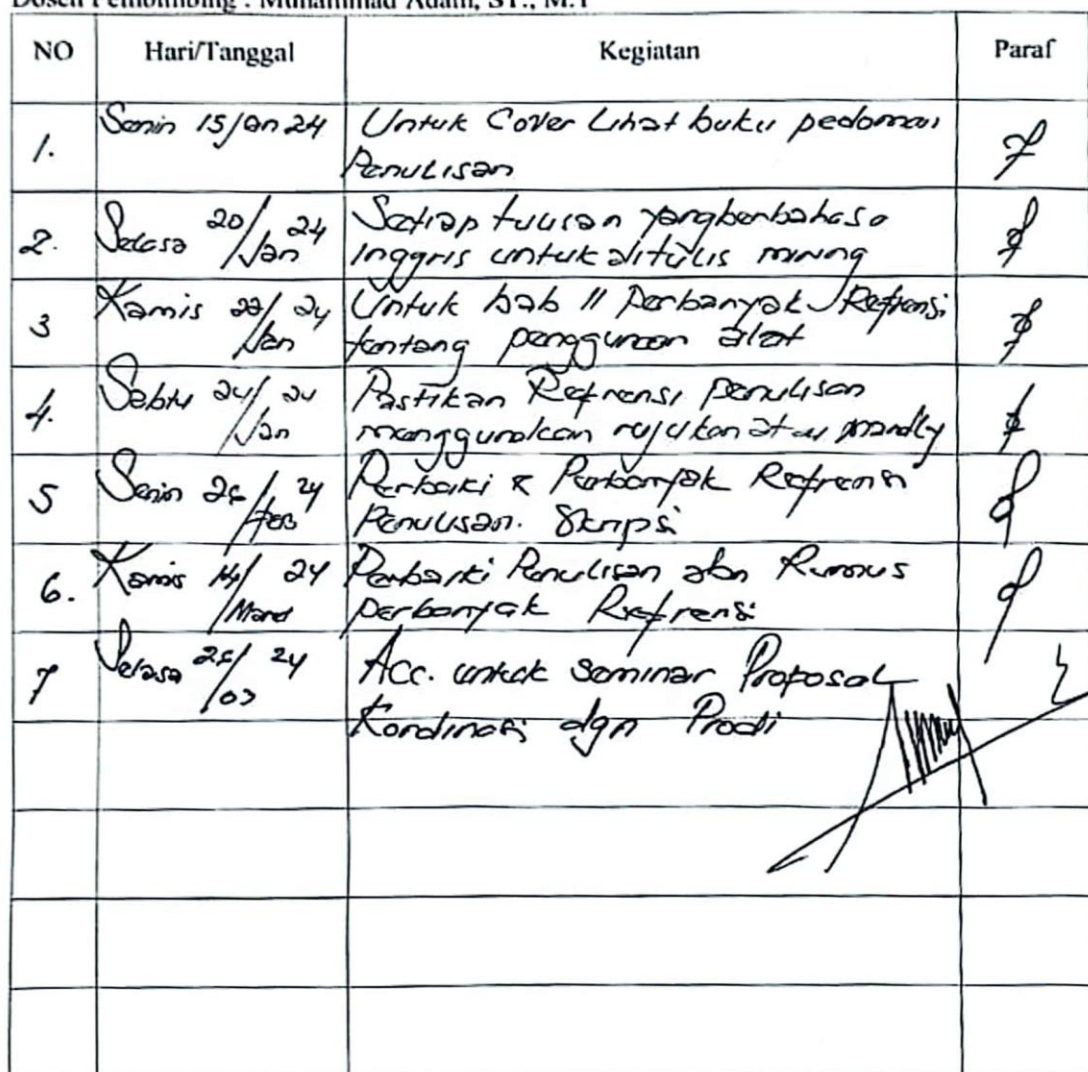 Dosen Pembimbing : Muhammad Adam, ST., M.T
NO Hari/Tanggal Kegiatan Paraf
1. Senin 15/Jan 24 Untuk Cover Lihat buku pedoman
Penulisan
2. Selasa 20/Jan 24 Setiap tulisan yang berbahasa
Inggris untuk ditulis miring
3 Kamis /Jan 24 Untuk bab II Perbanyak Refrensi
tentang penggunaan alat
4. Sabtu 24/Jan 24 Pastikan Refrensi penulisan
menggunakan rujukan atau
5 Senin /Feb 24 Perbaiki & Perbanyak Refrensi
Penulisan. Skripsi
6. Kamis 14/Maret 24 Perbaiki Penulisan dan Rumus
perbanyak Refrensi
7 Selasa /03 24 Acc. untuk seminar Proposal
Kordinasi dgn Prodi